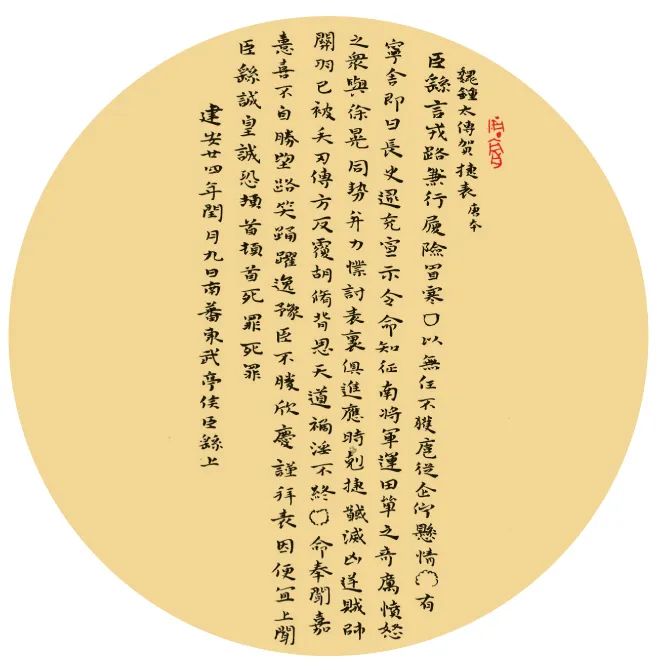 魏鍾太傅賀捷表唐本
臣繇言戎路兼行履險冒寒口以無任不獲扈從企佇懸情〇有
寧舍即日長史逯充宣示令命知征南將軍運田單之奇厲憤怒
之衆與徐晃同勢并力㷼討表裏俱進應時剋捷馘滅凶逆賊帥
關羽已被矢刃傅方反覆胡脩背恩天道禍淫不終〇命奉聞嘉
憙喜不自勝望路笑踊躍逸豫臣不勝欣慶謹拜表因便宜上聞
臣繇誠皇誠恐頓首頓首死罪死罪
建安廿四年閏月九日南蕃東武亭侯臣繇上